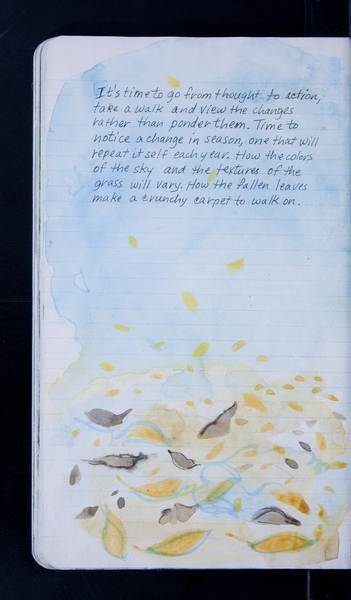 It's time to go from thought to action,
take a walk and view the changes
rather than ponder them. Time to
notice a change in season, one that will
repeat itself each year. How the colors
of the sky and the textures of the
grass will vary. How the fallen leaves
make a crunchy carpet to walk on.